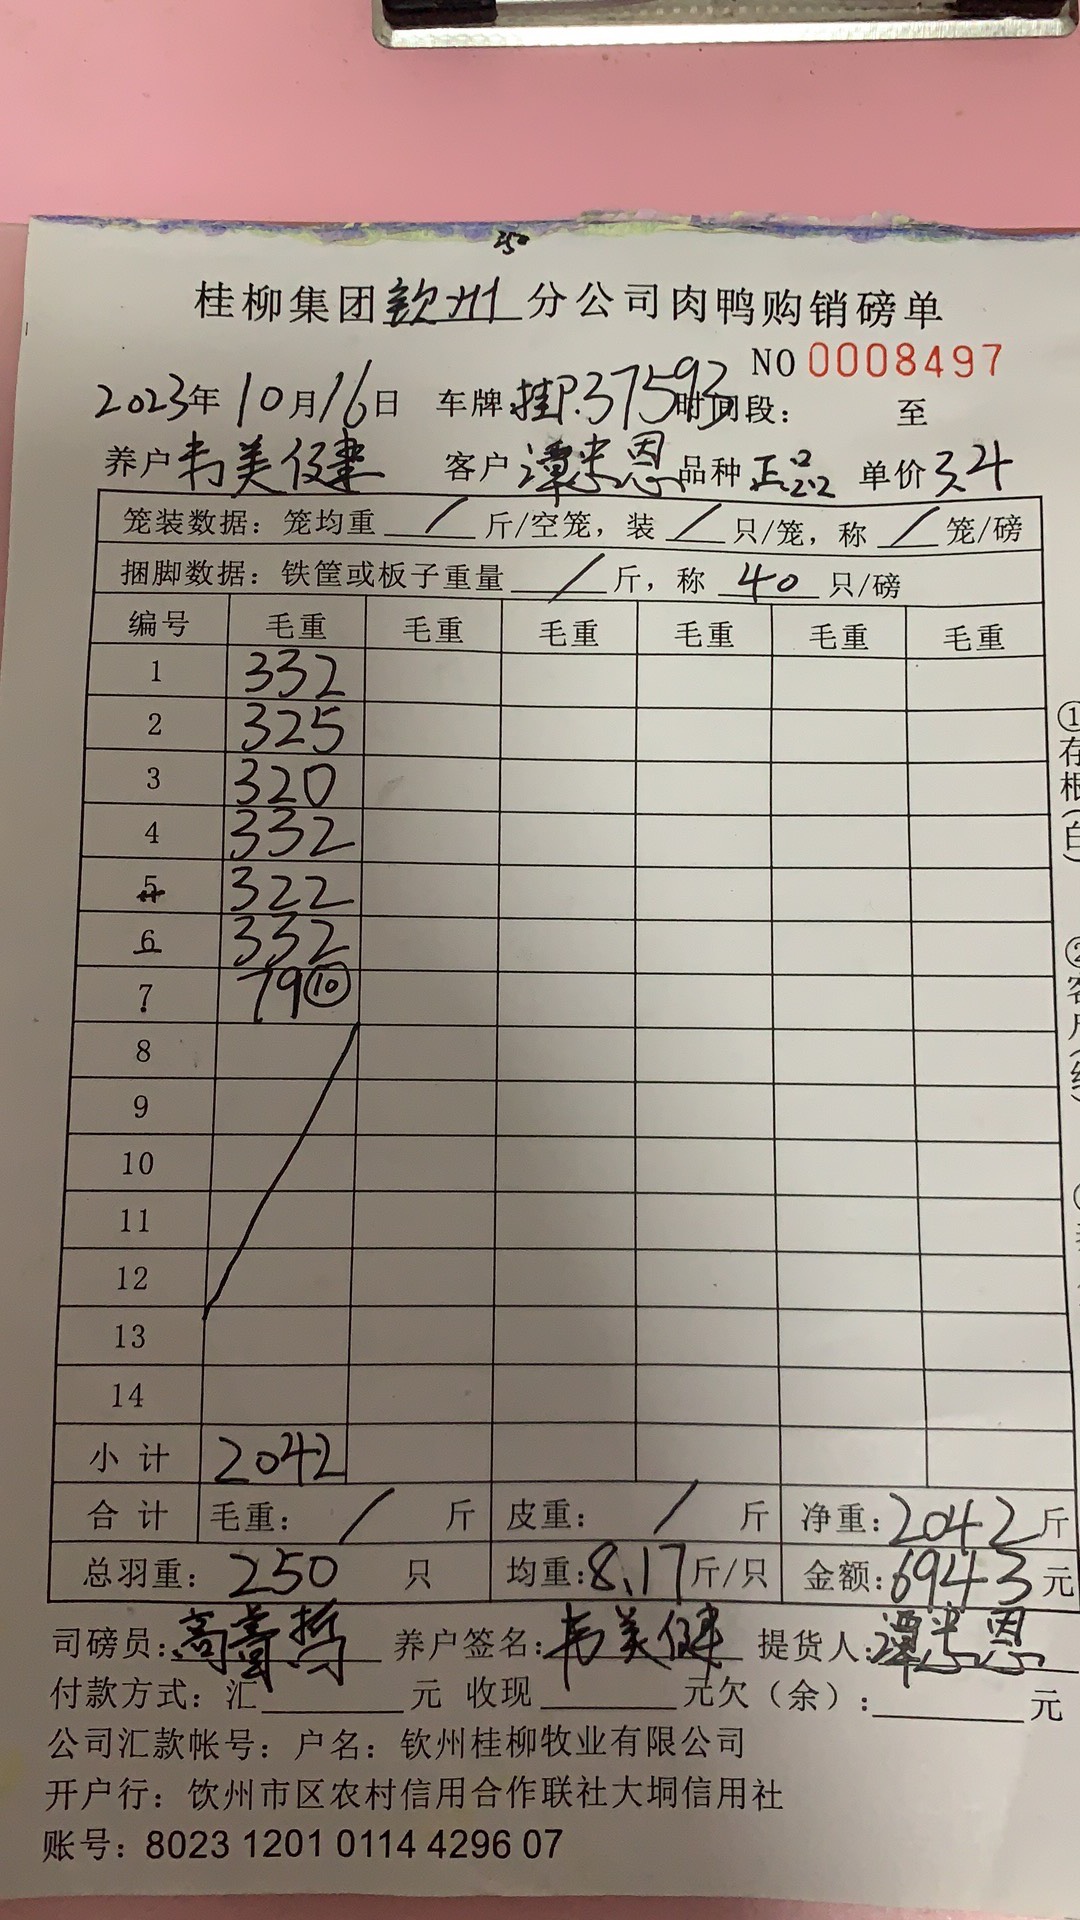 350
桂柳集团钦州分公司肉鸭购销磅单
NO 0008497
2023年10月16日 车牌桂P.37593时间段： 至
养户韦美健 客户谭惠恩品种正品 单价3.4
笼装数据：笼均重 / 斤/空笼，装 / 只/笼，称 / 笼/磅
捆脚数据：铁筐或板子重量 / 斤，称 40 只/磅
编号 毛重 毛重 毛重 毛重 毛重 毛重
1 332
2 325
3 320
4 332
5 322
6 332
7 79⑩
8
9
10
11
12
13
14
小计 2042
合计 毛重： / 斤 皮重： / 斤 净重：2042斤
总羽重：250 只 均重：8.17斤/只 金额：6943元
司磅员： 养户签名：韦美健 提货人：谭惠恩
付款方式：汇 元 收现 元欠（余）： 元
公司汇款帐号：户名：钦州桂柳牧业有限公司
开户行：饮州市区农村信用合作联社大垌信用社
账号：8023 1201 0114 4296 07
①存根（白）
②客户（红）